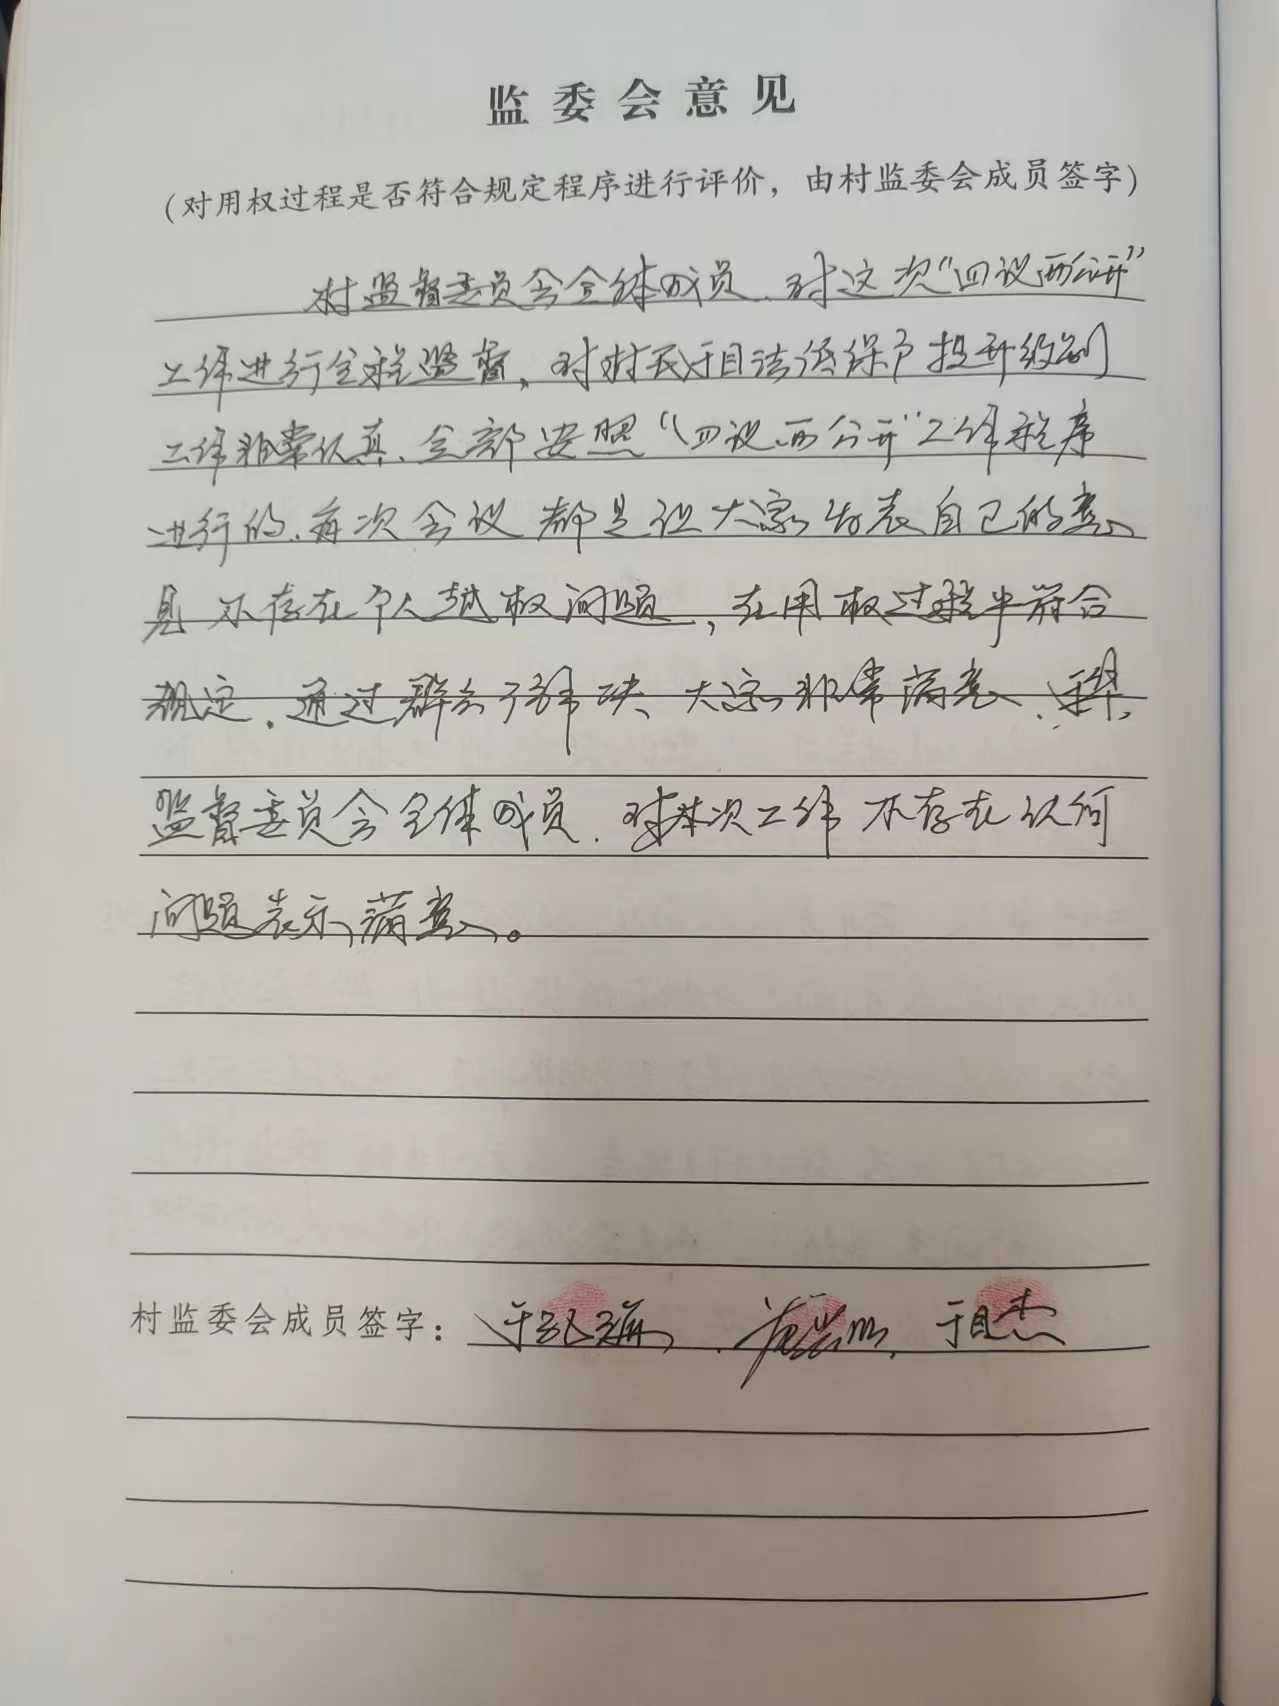 监委会意见
（对用权过程是否符合规定程序进行评价，由村监委会成员签字）
村监督委员会全体成员、对这次“四议两公开”
工作进行全程监督，对村民于目法低保户提升级别
工作非常认真、全部安照“四议两公开”工作程序
进行的、每次会议都是让大家发表自己的意
见不存在个人越权问题，在用权过程中符合
规定。通过群众解决、大家非常满意、
监督委员会全体成员、对本次工作不存在认何
问题表示满意。
村监委会成员签字：于目杰